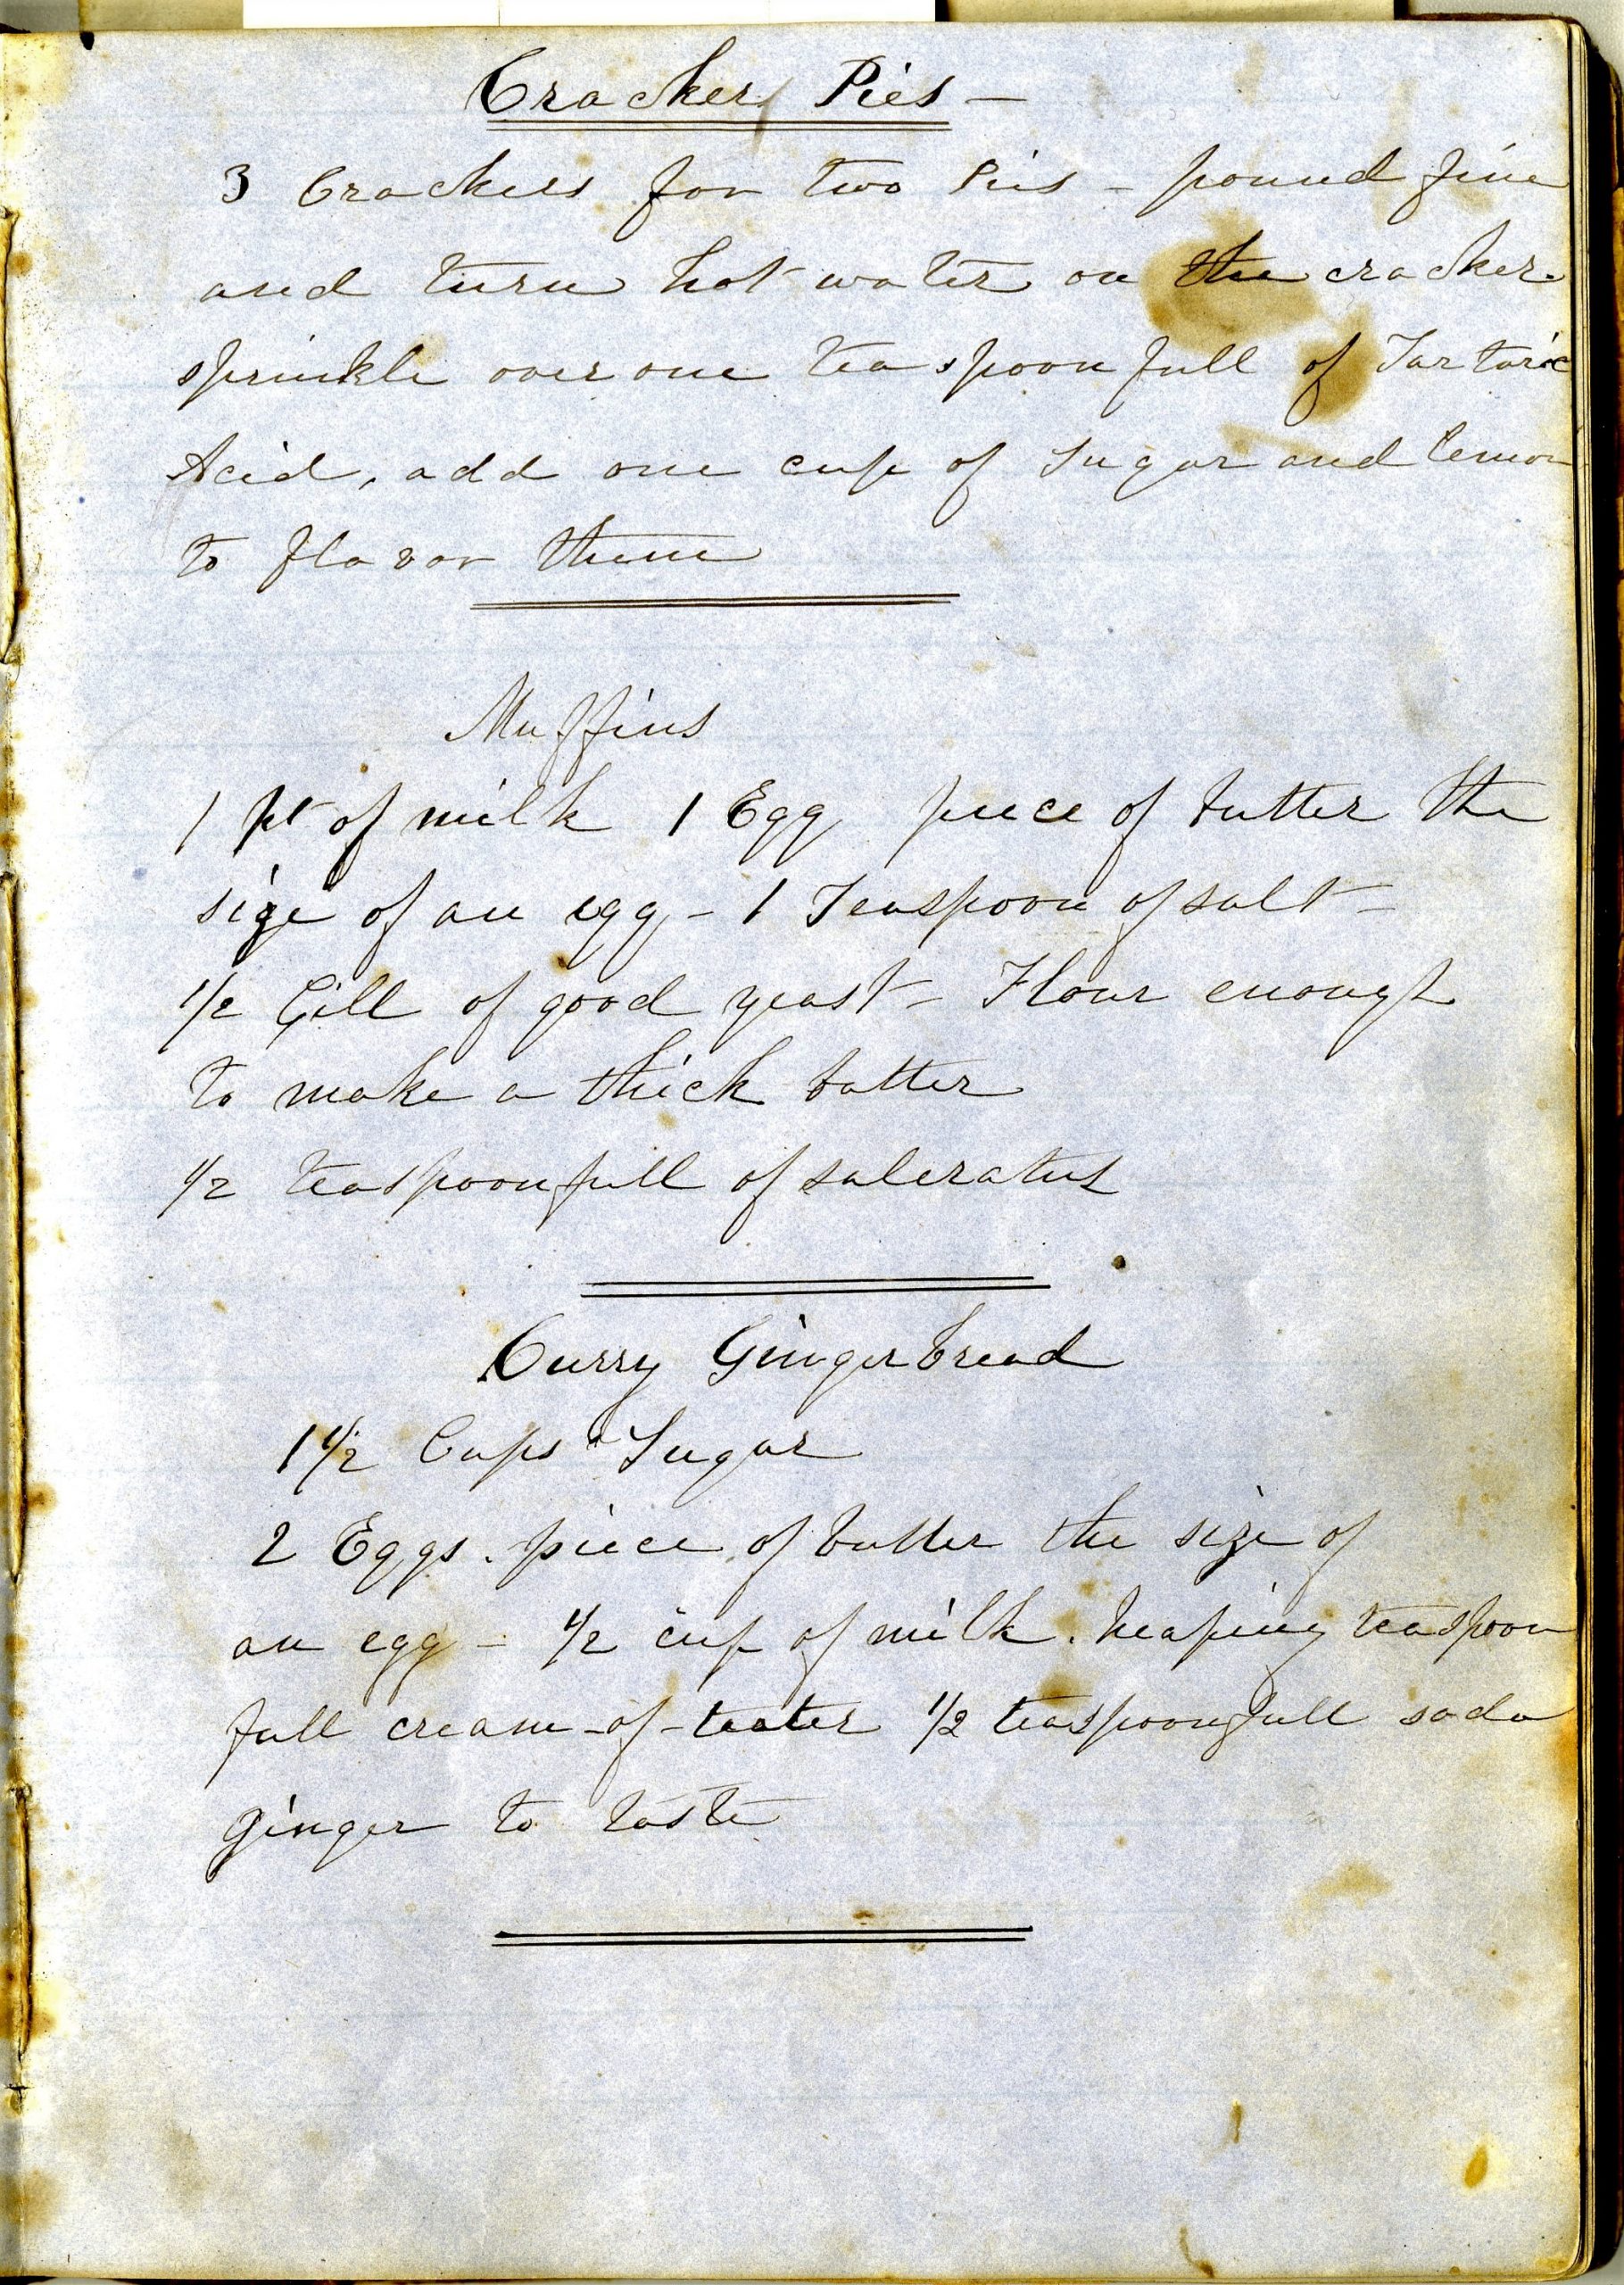 Cracker Pies —
3 Crackers for two Pies - pound fine
and turn hot water on the cracker.
sprinkle over one teaspoon full of Tartaric
Acid, add one cup of Sugar and lemon
to flavor them
Muffins
1 pt of milk 1 Egg piece of butter the
size of an egg - 1 Teaspoon of salt -
1/2 Gill of good yeast - Flour enough
to make a thick batter
1/2 teaspoonfull of saleratus
Curry Gingerbread
1 1/2 Cups Sugar
2 Eggs. piece of butter the size of
an egg - 1/2 cup of milk. heaping teaspoon
full cream-of-tarter 1/2 teaspoonfull soda
ginger to taste